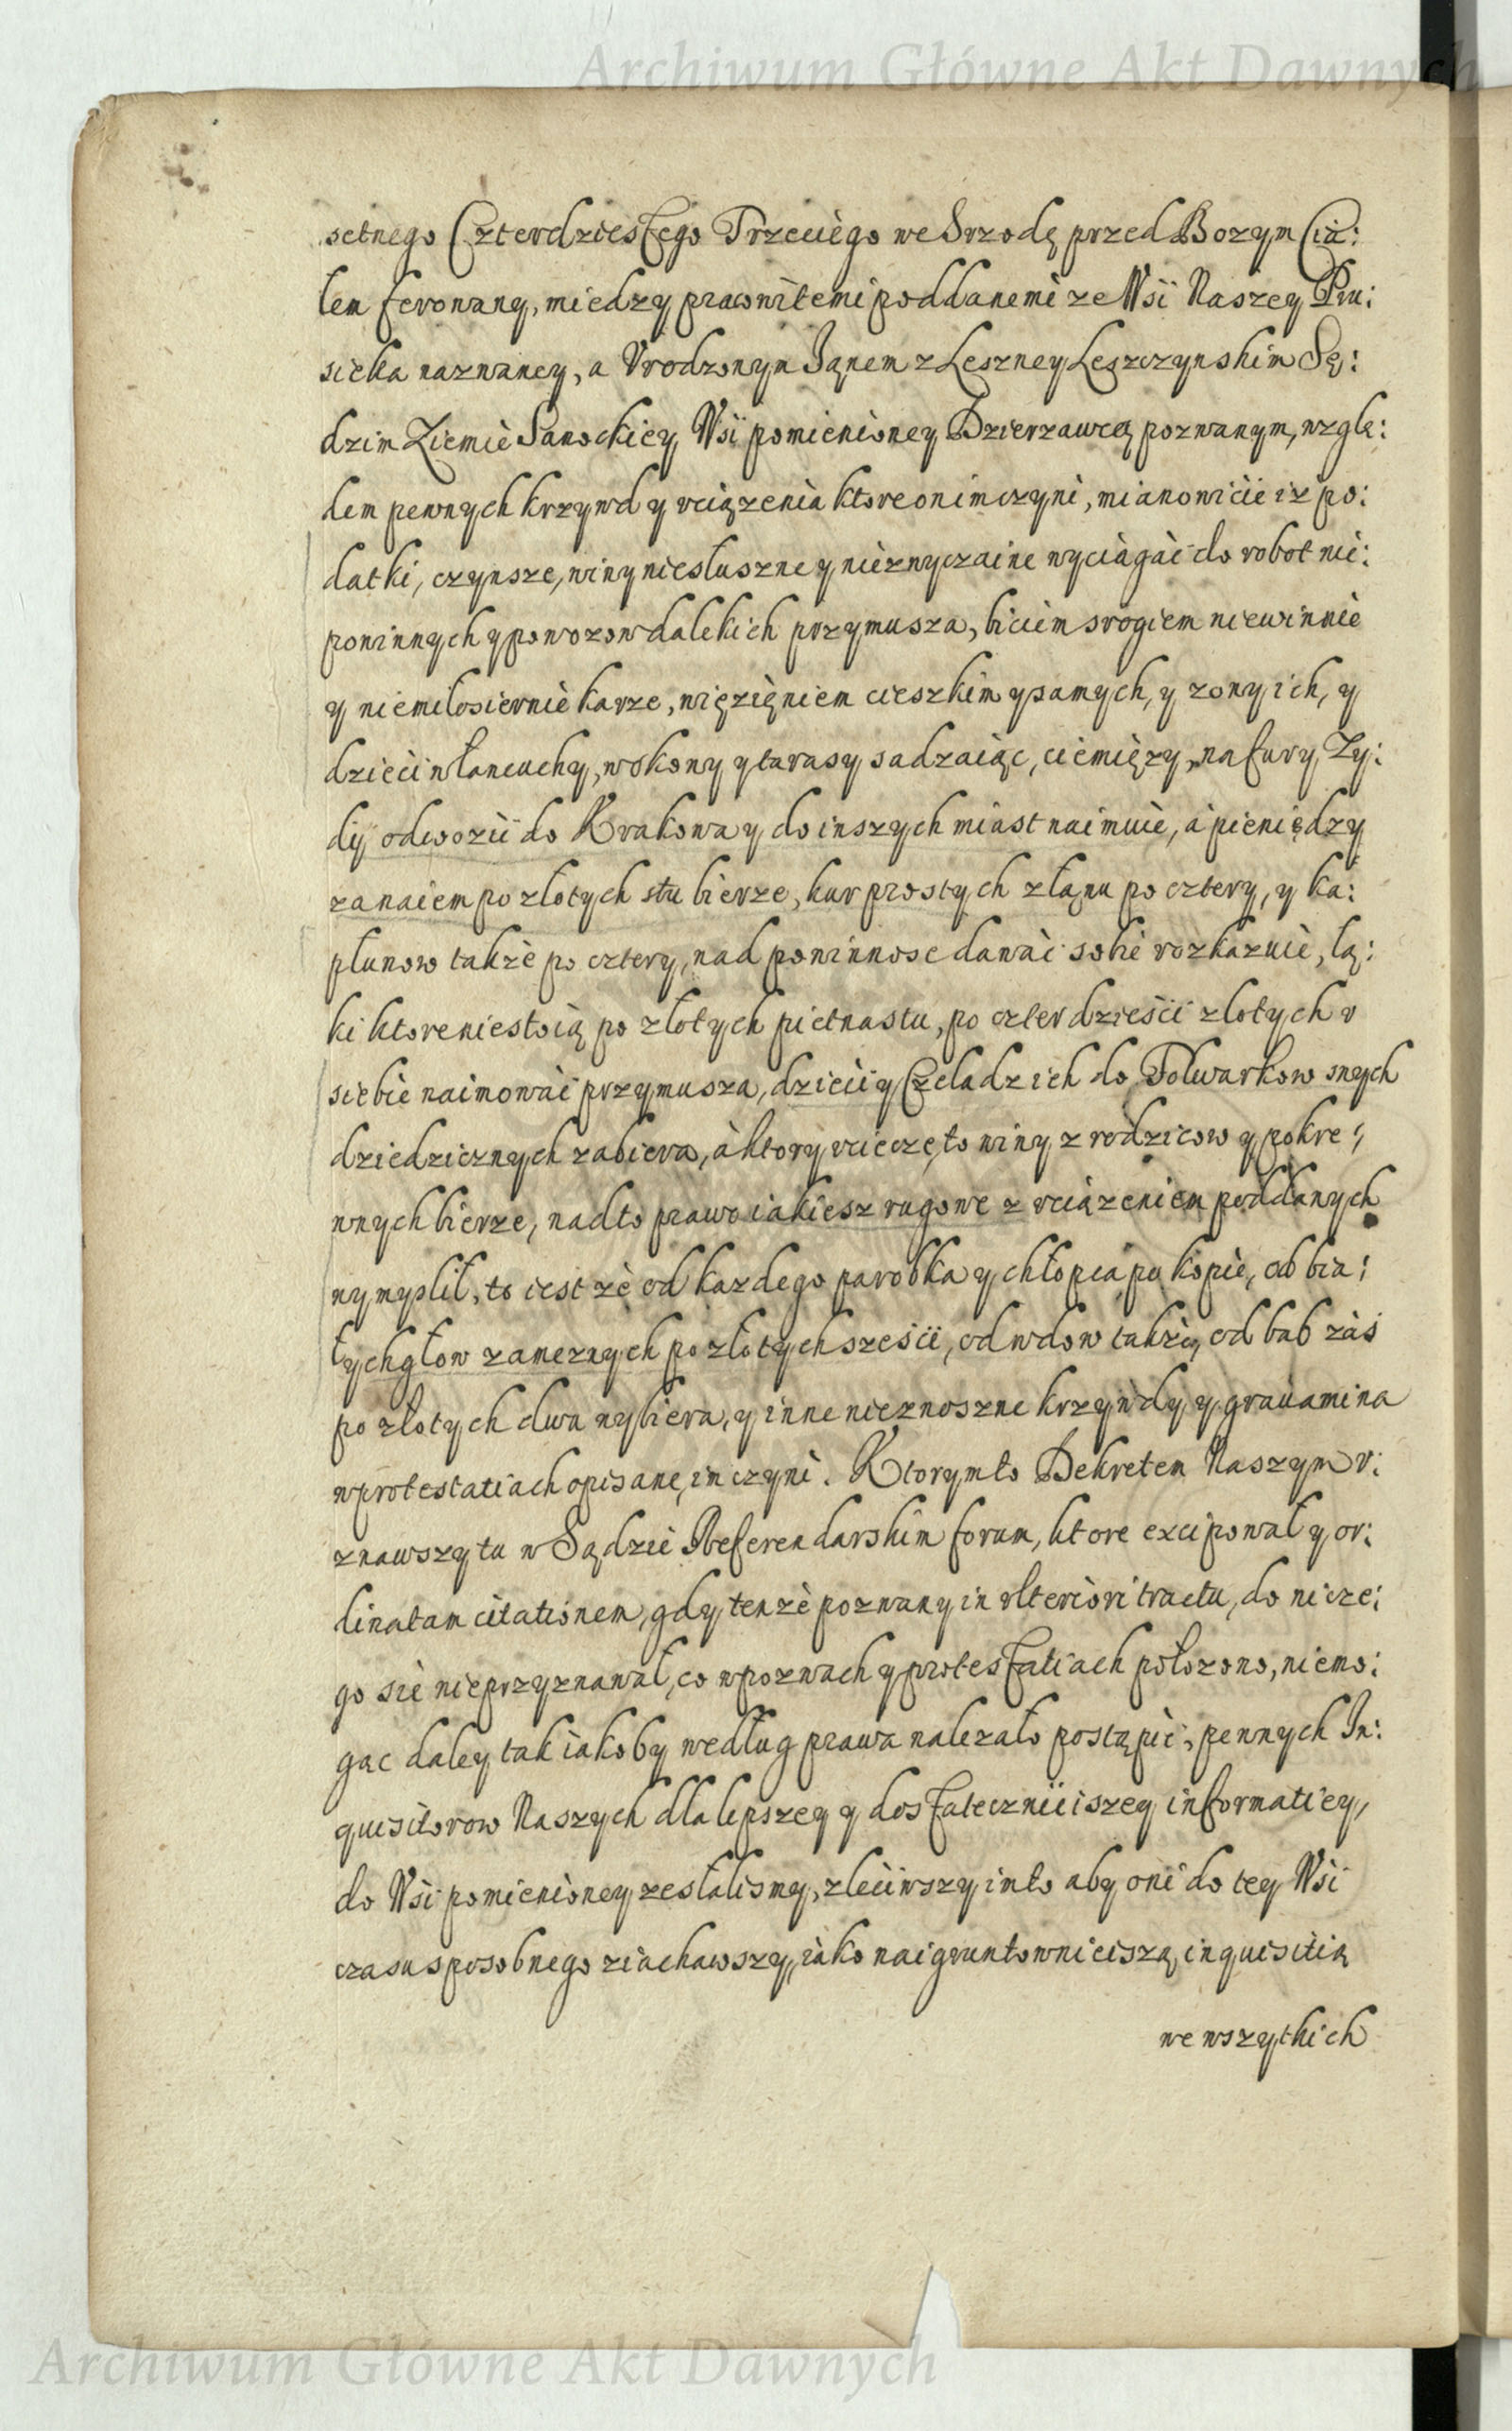 Archiwum Główne Akt Dawnych
setnego Czterdziestego Trzeciego we Srzodę przed Bozym Cia:
łem ferowany, miedzy prawnitemi poddanemi ze Wsi Naszey Pru:
sieka nazwaney, a Vrodzonym Janem z Leszney Leszczynskim Sę:
dzim Ziemie Sanockiey Wsi pomienioney Dzierzawcą pozwanym, wzglę:
dem pewnych krzywd y vciązenia ktore onim czyni, mianowicie iz po:
datki, czynsze, winy niesłuszne y niezwyczaine wyciągać do robot nie:
powinnych y powozow dalekich przymusza, biciem srogiem niewinnie
y niemiłosiernie karze, więzięniem cieszkim y samych, y zony ich, y
dzieci w łancuchy, w okowy y tarasy sadzaiąc, ciemięzy, na fury Zy:
dy odwozić do Krakowa y do inszych miast naimuie, à pieniędzy
za naiem po złotych stu bierze, kur prostych z łanu po cztery, y ka:
płunow także po cztery, nad powinnosc dawać sobie rozkazuie, łą:
ki ktore niestoią po złotych pietnastu, po czterdzieści złotych v
siebie naimować przymusza, dzieci y Czeladz ich do Folwarkow swych
dziedzicznych zabiera, à ktory vciecze, to winy z rodzicow y pokre:
wnych bierze, nadto prawo iakiesz rugowe z vciązeniem poddanych
wymyslił, to iest że od kazdego parobka y chłopca pu kopie, od bia:
łychgłow zamęznych po złotych sześci, od wdow także, od bab zaś
po złotych dwu wybiera, y inne nieznoszne krzywdy y grauamina
w protestatiach opisane, im czyni. Ktorym to Dekretem Naszym v:
znawszy tu w Sądzie Referendarskim forum, ktore excipował y or:
dinatam citationem, gdy tenże pozwany in vlteriori tractu, do nicze:
go sie nieprzyznawał, co w pozwach y protestatiach położono, niemo:
gąc daley tak iakoby według prawa nalezało postąpić, pewnych In:
quisitorow Naszych dla lepszey y dostateczniieiszey informatiey,
do Wsi pomienioney zesłalismy, zleciwszy im to aby oni do tey Wsi
czasu sposobnego ziachawszy, iako naigruntownieiszą inquisitią
we wszytkich
Archiwum Główne Akt Dawnych